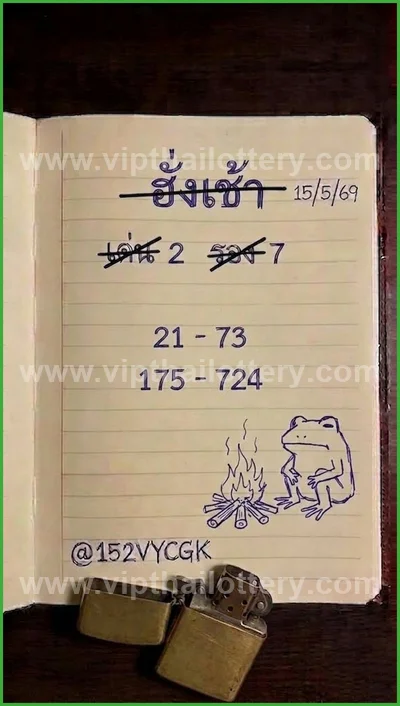 www.vipthailottery.com
ฮั่งเช้า 15/5/69
เด่น 2 รอง 7
21 - 73
www.vipthailottery.com
175 - 724
@152VYCGK
www.vipthailottery.com